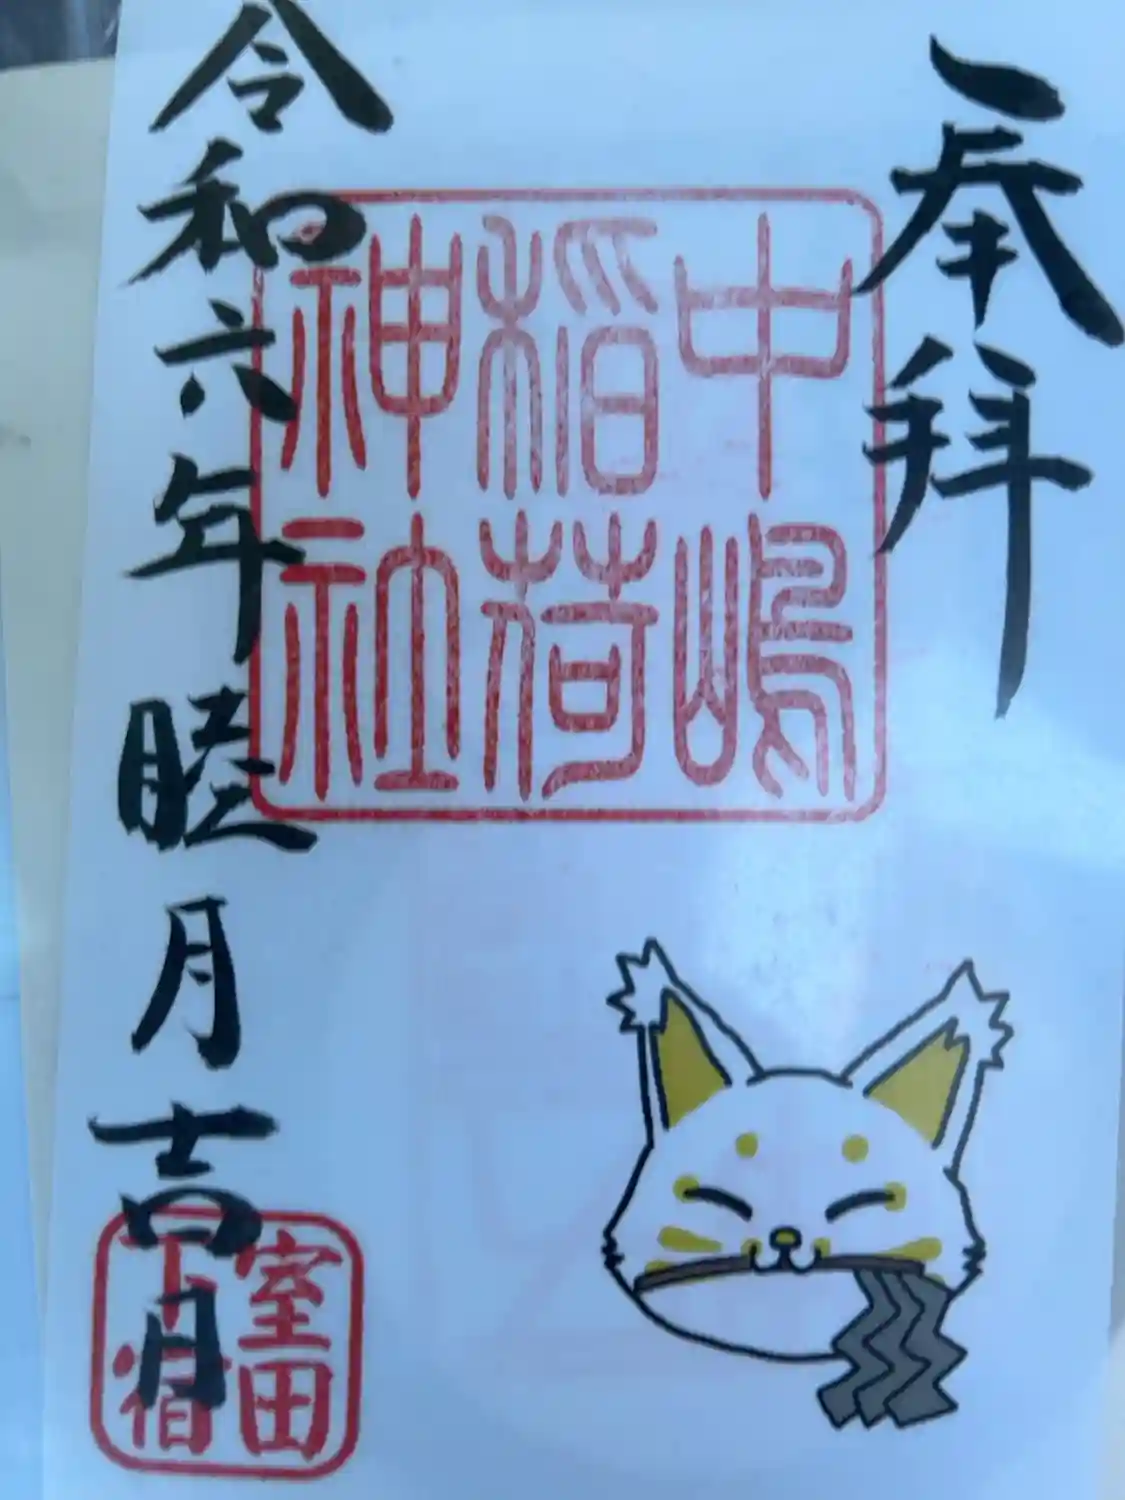 奉拝
中嶋
稲荷
神社
令和六年睦月吉月
室田
下宿